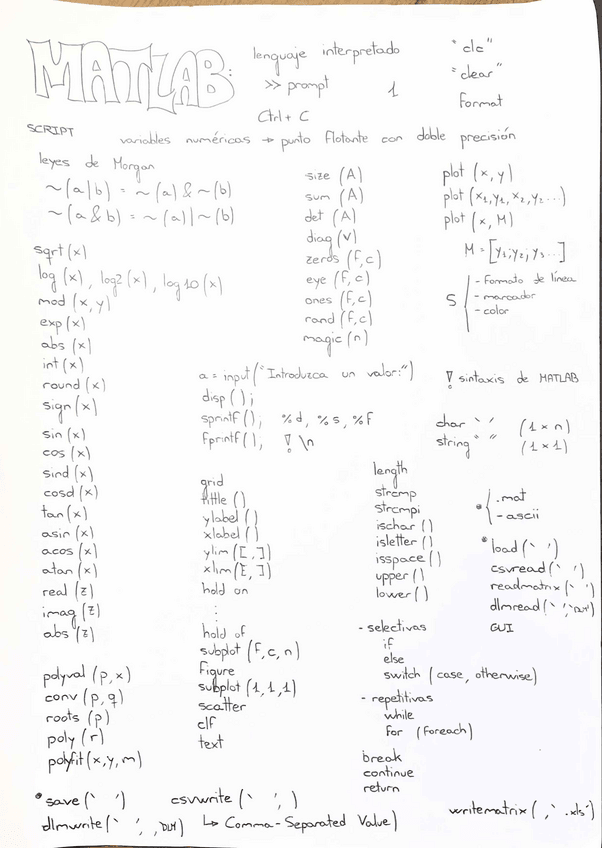 MATLAB:
lenguaje interpretado
>> prompt
1
Ctrl + C
"clc"
"clear"
format
SCRIPT
variables numéricas → punto flotante con doble precisión
leyes de Morgan
~(a|b) = ~(a) & ~(b)
~(a&b) = ~(a)|~(b)
sqrt(x)
log(x), log2(x), log10(x)
mod(x,y)
exp(x)
abs(x)
int(x)
round(x)
sign(x)
sin(x)
cos(x)
sind(x)
cosd(x)
tan(x)
asin(x)
acos(x)
atan(x)
real(z)
imag(z)
abs(z)
polyval(p,x)
conv(p,q)
roots(p)
poly(r)
polyfit(x,y,m)
size(A)
sum(A)
det(A)
diag(v)
zeros(f,c)
eye(f,c)
ones(f,c)
rand(f,c)
magic(n)
plot(x,y)
plot(x1,y1,x2,y2...)
plot(x,M)
M=[y1;y2;y3...]
S { - formato de línea
- marcador
- color
a = input("Introduzca un valor:")
disp();
sprintf(); %d, %s, %f
fprintf(); ! \n
! sintaxis de MATLAB
char ` ´ (1×n)
string " " (1×1)
grid
tittle()
ylabel()
xlabel()
ylim([,])
xlim([,])
hold on
⋮
hold of
subplot(f,c,n)
figure
subplot(1,1,1)
scatter
clf
text
length
strcmp
strcmpi
ischar()
isletter()
isspace()
upper()
lower()
* { .mat
-ascii
*load(` ´)
csvread(` ´)
readmatrix(` ´)
dlmread(` ´,`DLM´)
GUI
- selectivas
if
else
switch (case, otherwise)
- repetitivas
while
for (foreach)
break
continue
return
*save(` ´)
csvwrite(` ´, )
writematrix( ,` .xls´)
dlmwrite(` ´, ,DLM)
↳ Comma-Separated Value)